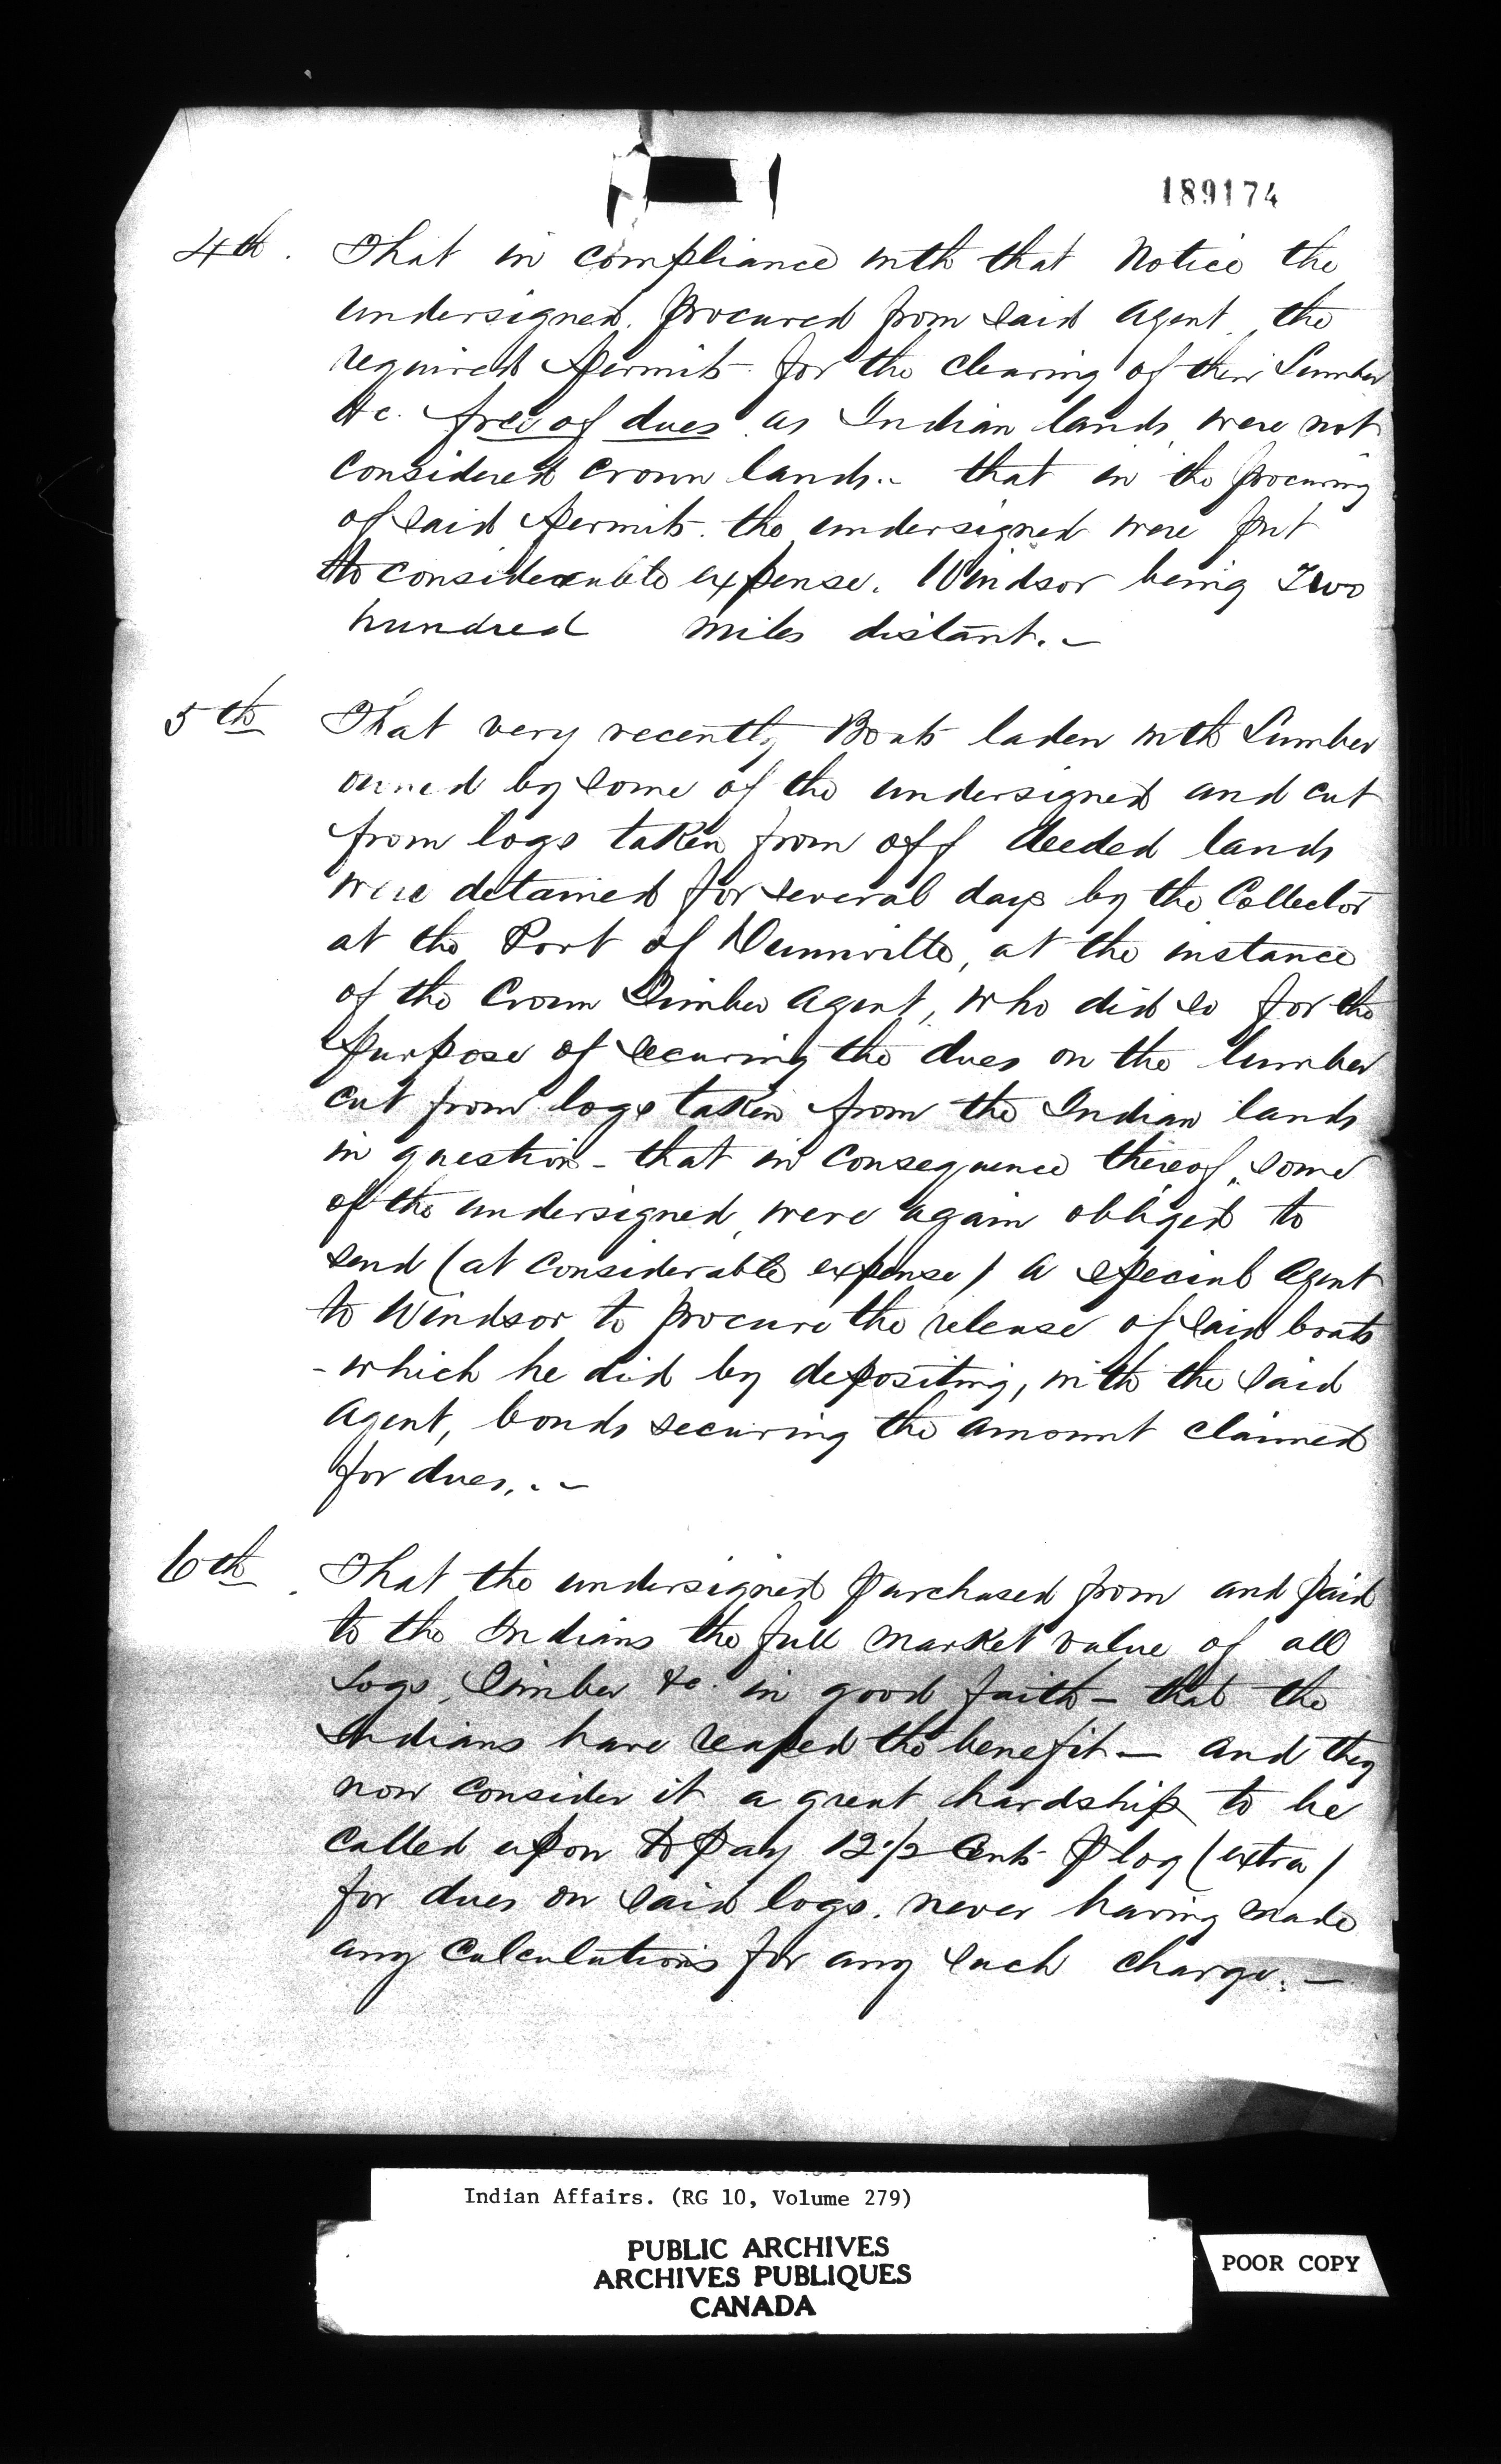 189174
4th. That in compliance with that Notice the
undersigned. procured from said Agent, the
required permits for the clearing of their Lumber
&c. free of dues as Indian lands were not
considered Crown lands.- that in the procuring
of said permits. the undersigned were put
to considerable expense. Windsor being Two
hundred miles distant.-
5th That very recently Boats laden with Lumber
owned by some of the undersigned and cut
from logs taken from off deeded lands
were detained for several days by the Collector
at the Port of Dunnville, at the instance
of the Crown Timber Agent, who did so for the
purpose of securing the dues on the lumber
cut from logs taken from the Indian lands
in question - that in consequence thereof, some
of the undersigned, were again obliged to
send (at considerable expense) a special Agent
to Windsor to procure the release of said boats
- which he did by depositing, with the said
Agent, bonds securing the amount claimed
for dues. . -
6th. That the undersigned purchased from and paid
to the Indians the full market value of all
Logs, Timber &c. in good faith - that the
Indians have reaped the benefit - and they
now consider it a great hardship to be
called upon to pay 12 1/2 Cents ⅌ log (extra)
for dues on said logs. never having made
any calculations for any such charge. -
Indian Affairs. (RG 10, Volume 279)
PUBLIC ARCHIVES
ARCHIVES PUBLIQUES
CANADA
POOR COPY